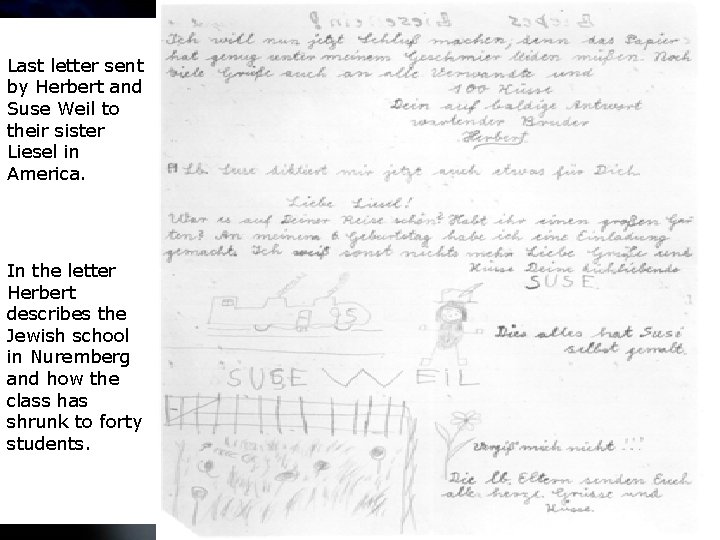 Last letter sent
by Herbert and
Suse Weil to
their sister
Liesel in
America.
In the letter
Herbert
describes the
Jewish school
in Nuremberg
and how the
class has
shrunk to forty
students.
Ich will nun jetzt Schluß machen, denn das Papier
hat genug unter meinem Geschmier leiden müßen. Noch
viele Grüße auch an alle Verwandte und
100 Küsse
Dein auf baldige Antwort
wartender Bruder
Herbert
Lb. Suse diktiert mir jetzt auch etwas für Dich.
Liebe Liesel!
War es auf Deiner Reise schön? Habt ihr einen großen Gar
ten? An meinem 6 Geburtstag habe ich eine Einladung
gemacht. Ich weiß sonst nichts mehr Liebe Grüße und
Küsse Deine Dichliebende
SUSE.
Dies alles hat Suse
selbst gemalt.
SUSE WEIL
vergiß mich nicht!!!
Die lb. Eltern senden Euch
alle herzl. Grüsse und
Küsse.